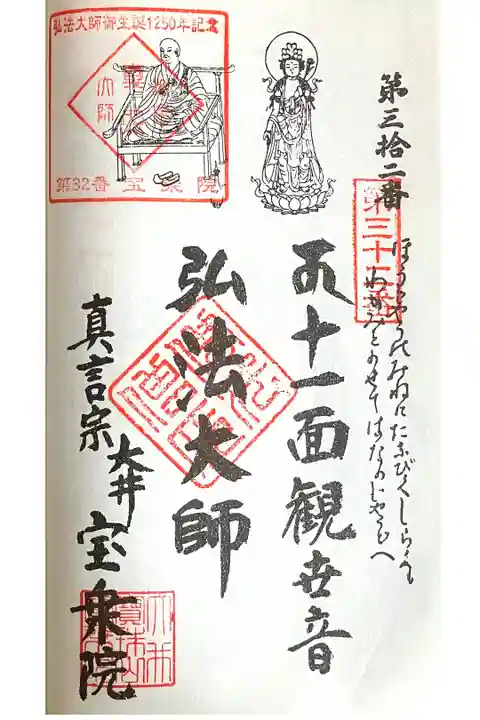 第三拾二番
第三十二番
ほうしやうのみねにたなびくしらくも
わがみをのせてはなのじやうどへ
十一面観世音
弘法大師御生誕1250年記念
第32番 宝衆院
弘法大師
真言宗
大井
宝衆院